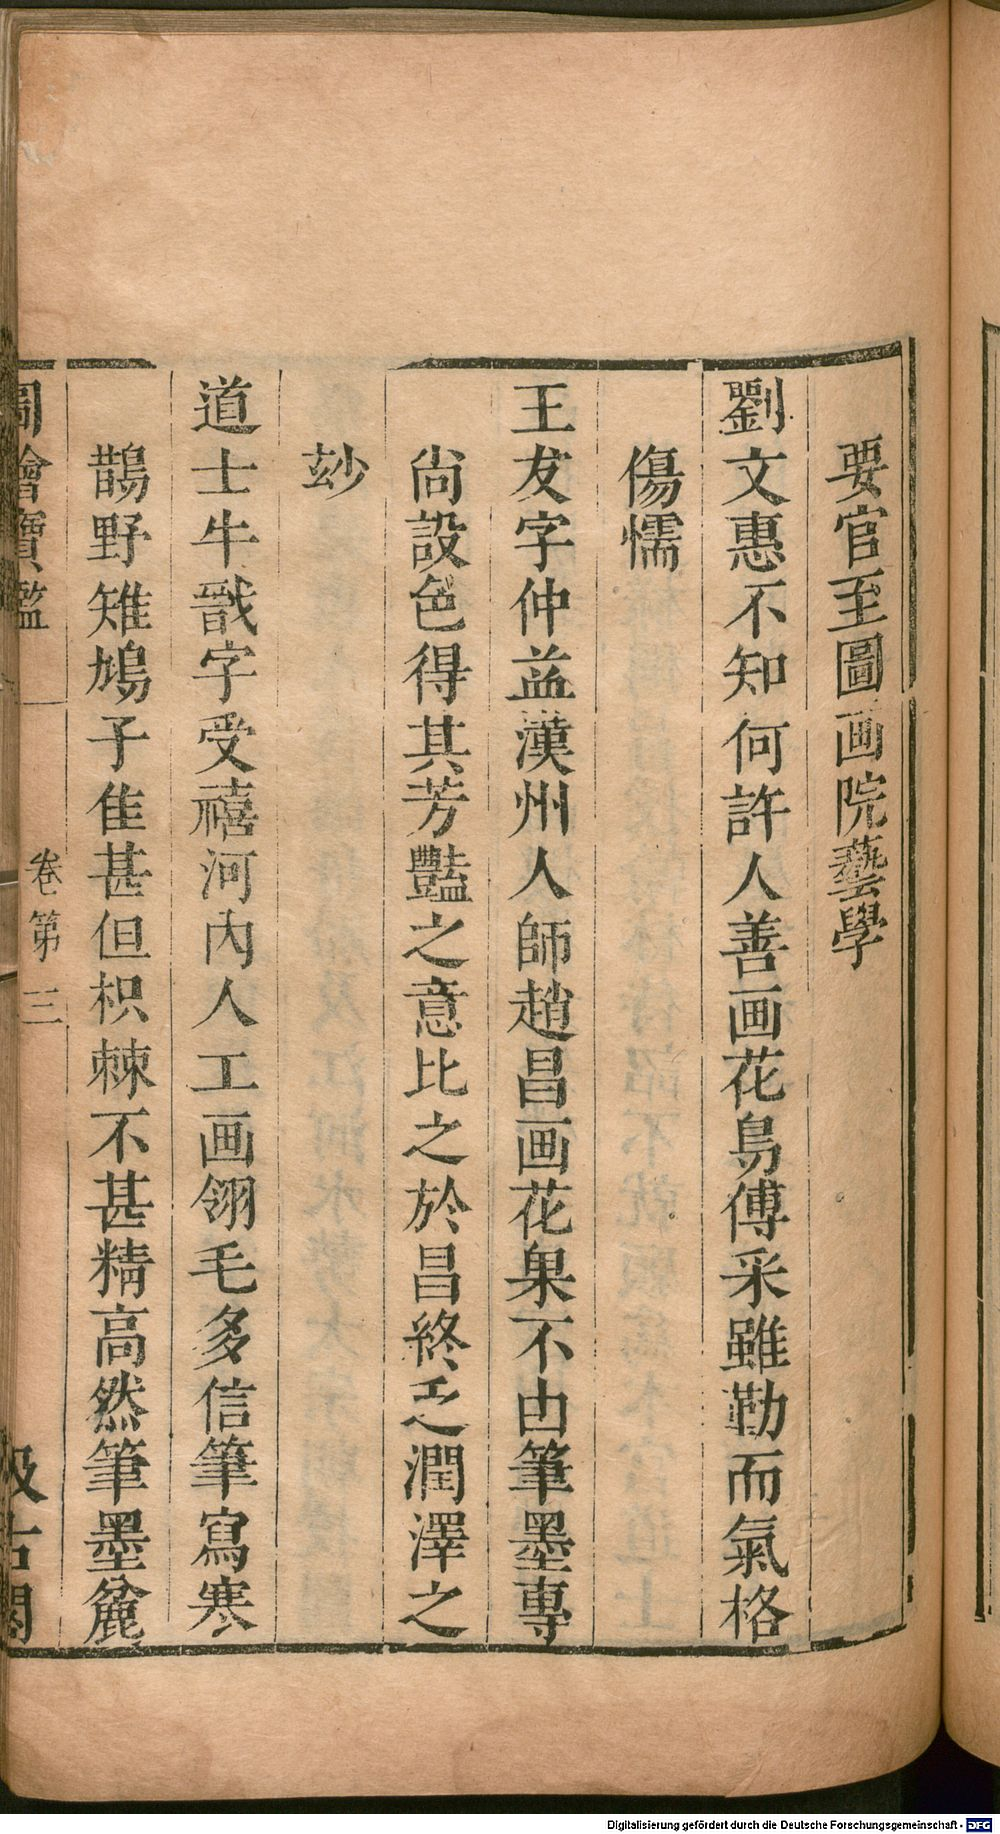 要官至圖画院藝學
劉文惠不知何許人善画花鳥傅采雖勤而氣格
傷懦
王友字仲益漢州人師趙昌画花果不由筆墨專
尚設色得其芳豔之意比之於昌終乏潤澤之
玅
道士牛戩字受禧河内人工画翎毛多信筆寫寒
鵲野雉鳩子隹甚但枳棘不甚精高然筆墨麄
圖繪寶鑑
卷第三
汲古閣
Digitalisierung gefördert durch die Deutsche Forschungsgemeinschaft - DFG